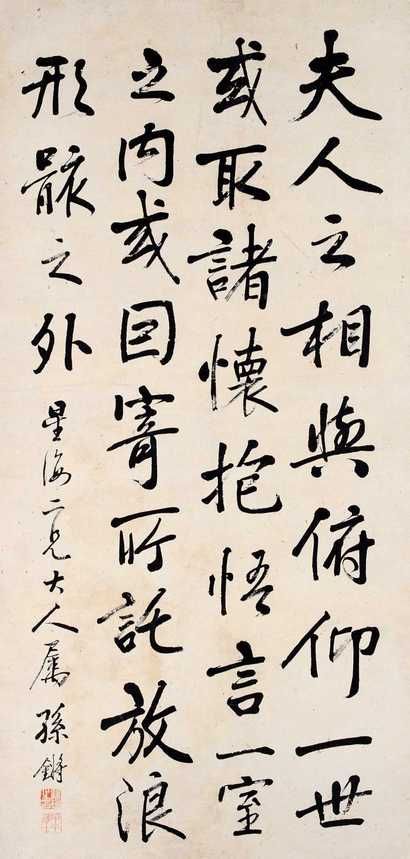 夫人之相與俯仰一世
或取諸懷抱悟言一室
之內或因寄所託放浪
形骸之外
星海二兄大人屬 孫鏘